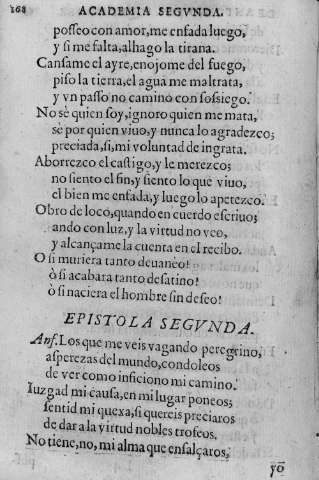 168 ACADEMIA SEGVNDA.
posseo con amor, me enfada luego,
y si me falta, alhago la tirana.
Cansame el ayre, enojome del fuego,
piso la tierra, el agua me maltrata,
y vn passo no camino con sossiego.
No sè quien soy, ignoro quien me mata,
sè por quien viuo, y nunca lo agradezco;
preciada, si, mi voluntad de ingrata.
Aborrezco el castigo, y le merezco;
no siento el fin, y siento lo que viuo,
el bien me enfada, y luego lo apetezco.
Obro de loco, quando en cuerdo escriuo;
ando con luz, y la virtud no veo,
y alcançame la cuenta en el recibo.
O si muriera tanto deuaneo!
ò si acabara tanto desatino!
ò si naciera el hombre sin deseo!
EPISTOLA SEGVNDA.
Ans. Los que me veis vagando peregrino,
asperezas del mundo, condoleos
de ver como inficiono mi camino.
Iuzgad mi causa, en mi lugar poneos;
sentid mi quexa, si quereis preciaros
de dar a la virtud nobles trofeos.
No tiene, no, mi alma que ensalçaros,
yo